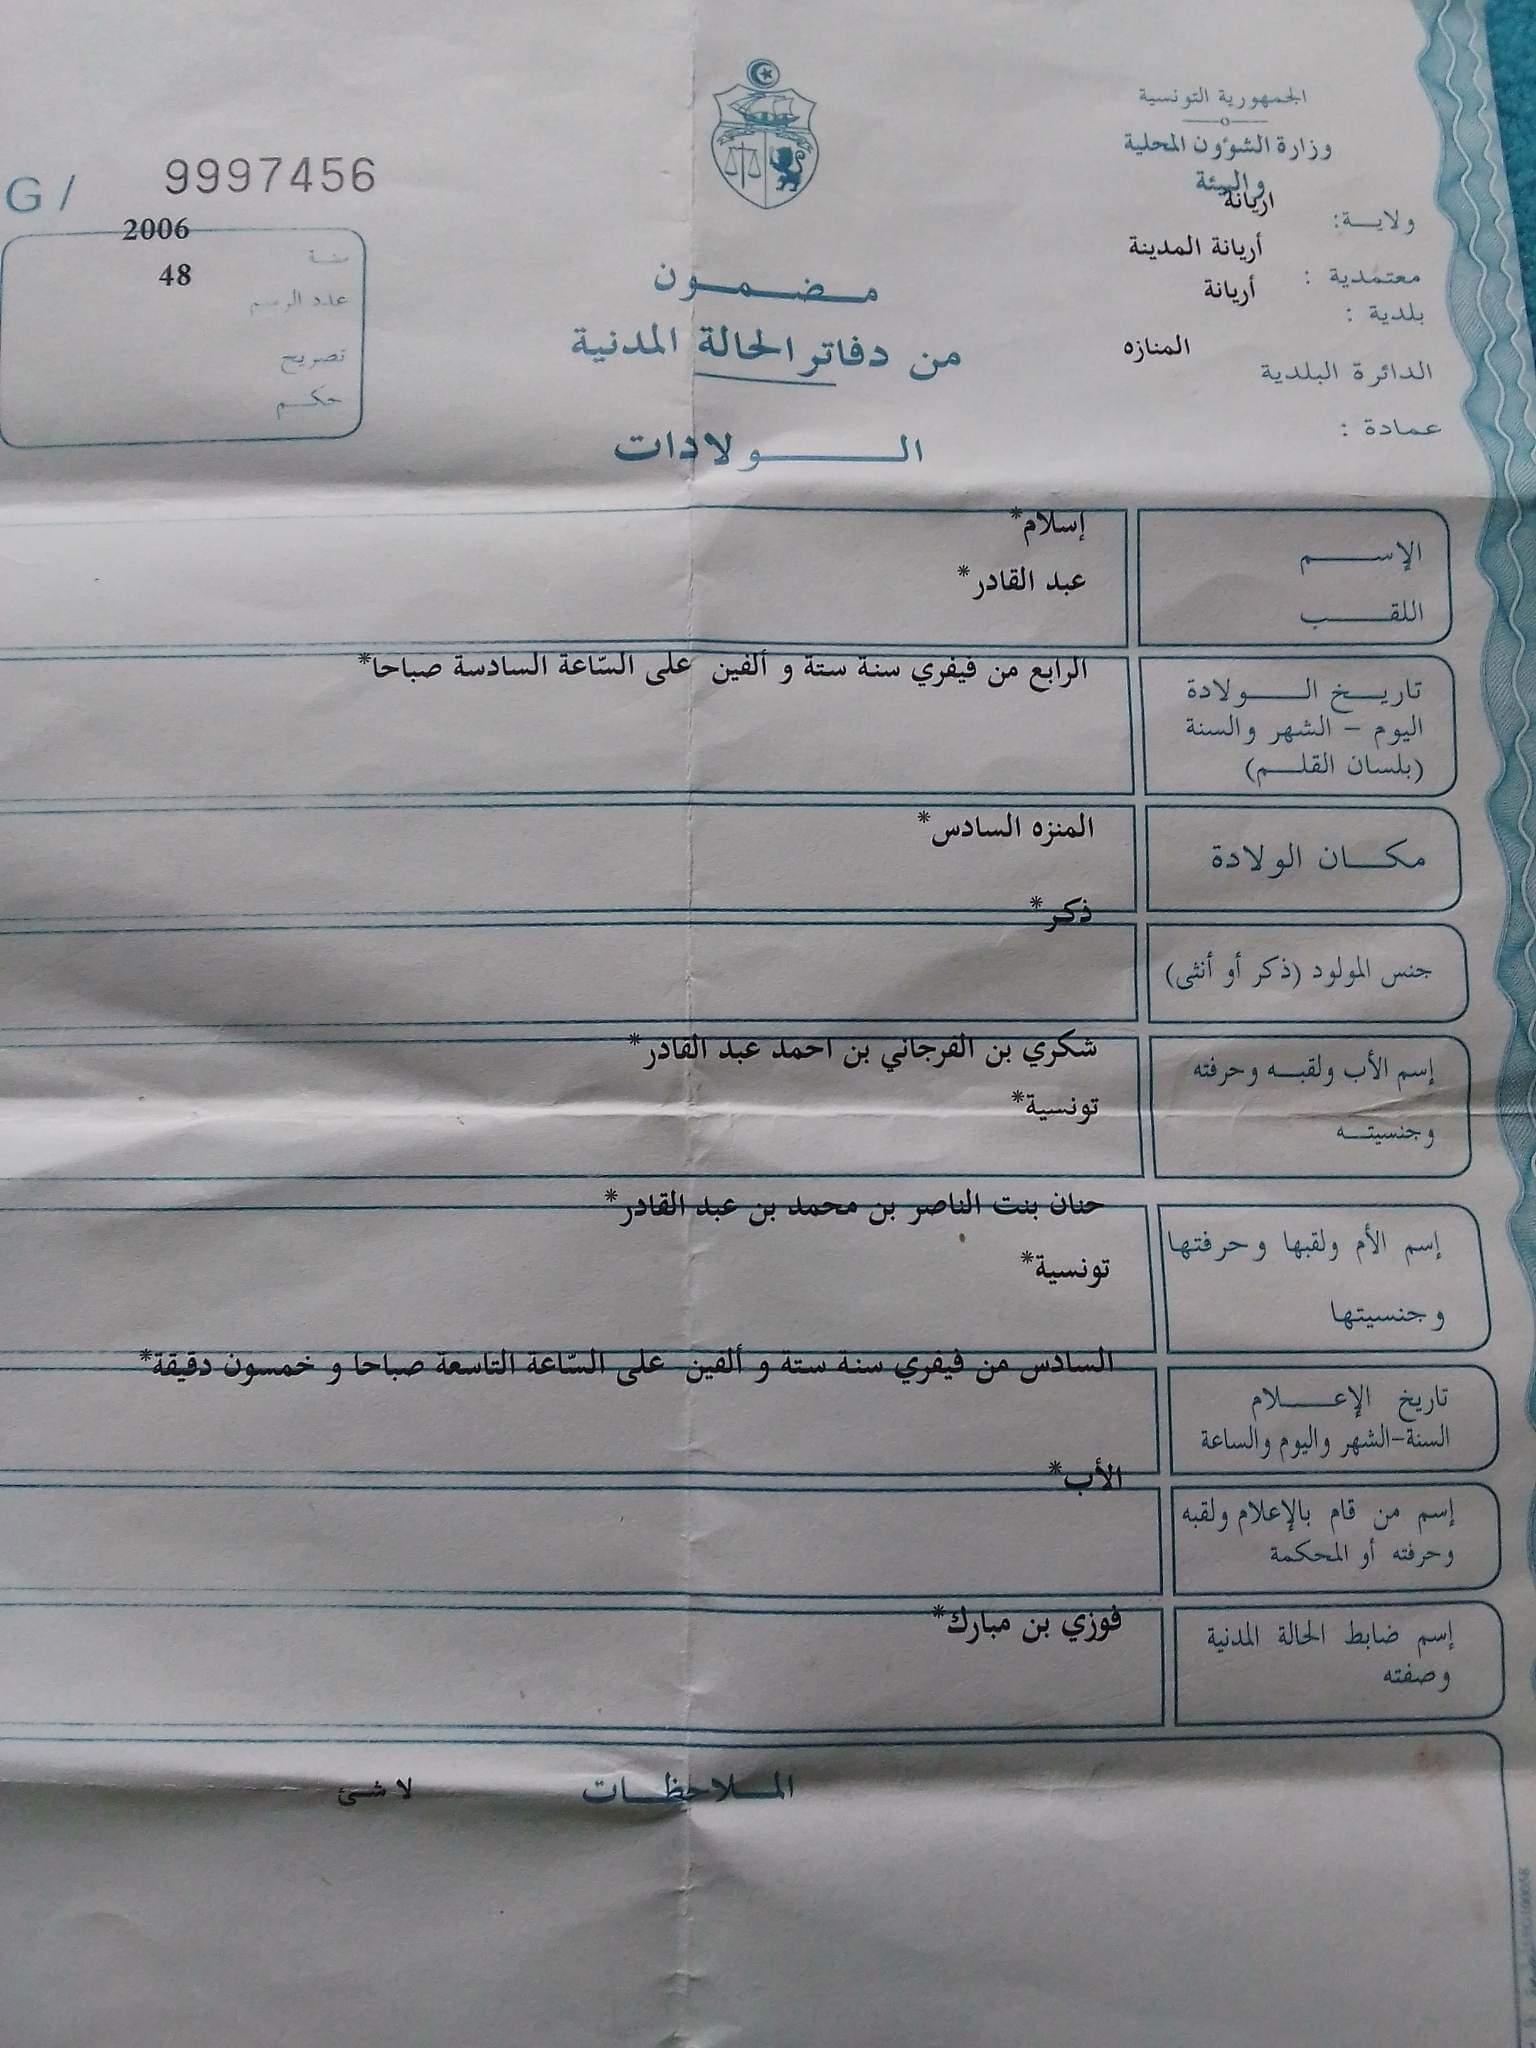 الجمهورية التونسية
وزارة الشؤون المحلية
والبيئة
ولاية: اريانة
معتمدية : أريانة المدينة
بلدية : أريانة
الدائرة البلدية المنازه
عمادة :
G / 9997456
سنة 2006
عدد الرسم 48
تصريح
حكم
مضمون
من دفاتر الحالة المدنية
الولادات
الإسم إسلام*
اللقب عبد القادر*
تاريخ الولادة الرابع من فيفري سنة ستة و ألفين على السّاعة السادسة صباحا*
اليوم - الشهر والسنة
(بلسان القلم)
مكان الولادة المنزه السادس*
ذكر*
جنس المولود (ذكر أو أنثى)
شكري بن الفرجاني بن احمد عبد القادر*
إسم الأب ولقبه وحرفته
تونسية*
وجنسيته
حنان بنت الناصر بن محمد بن عبد القادر*
إسم الأم ولقبها وحرفتها
تونسية*
وجنسيتها
السادس من فيفري سنة ستة و ألفين على السّاعة التاسعة صباحا و خمسون دقيقة*
تاريخ الإعلام
السنة-الشهر واليوم والساعة
الأب*
إسم من قام بالإعلام ولقبه
وحرفته أو المحكمة
فوزي بن مبارك*
إسم ضابط الحالة المدنية
وصفته
الملاحظات لا شئ